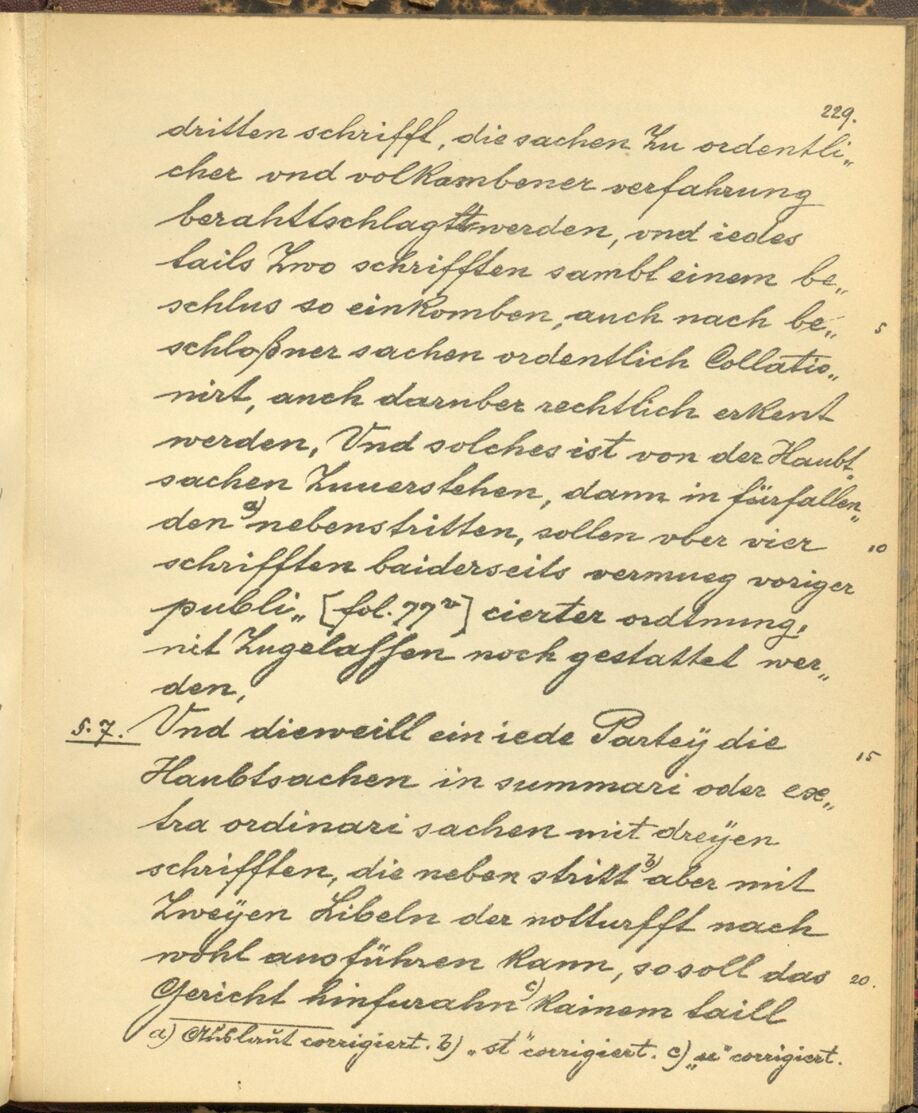 229.
dritten schrifft, die sachen Zu ordentli„
cher vnd volkambener verfahrung
berahttschlagtt werden, vnd iedes
tails Zwo schrifften sambt einem be„
schlus so einkomben, auch nach be„ 5
schloßner sachen ordentlich Collatio„
nirt, auch daruber rechtlich erkent
werden, Vnd solches ist von der Haubt„
sachen Zuuerstehen, dann in fürfallen„
den a) nebenstritten, sollen vber vier 10
schrifften baiderseits vermueg voriger
publi„ [fol. 77v] cierter ordtnung,
nit Zugelassen noch gestattet wer„
den,
§.7. Vnd dieweill ein iede Partey die 15
Haubtsachen in summari oder ex„
tra ordinari sachen mit dreÿen
schrifften, die neben stritt b) aber mit
Zweÿen Libeln der notturfft nach
wohl ausführen kann, so soll das 20.
Gericht hinfurahn c) kainem taill
a) Auslaut corrigiert. b) „st" corrigiert. c) corrigiert.